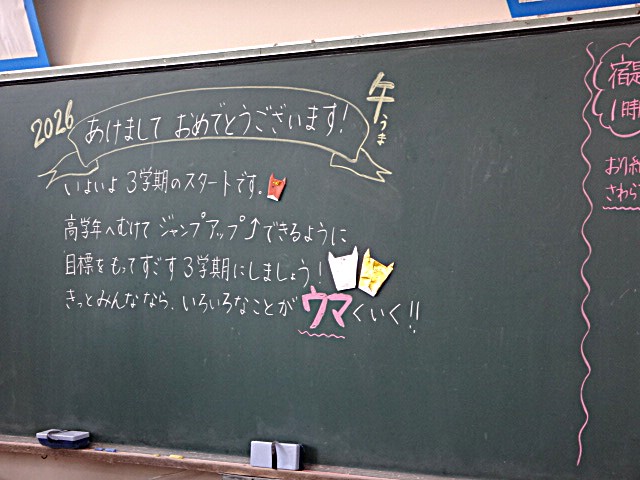 2026
あけまして おめでとうございます!
午
うま
いよいよ 3学期のスタートです。
高学年へむけて ジャンプアップ↑できるように
目標をもってすごす3学期にしましょう!
きっとみんななら、いろいろなことが ウマくいく!!
1時
おり
さわら